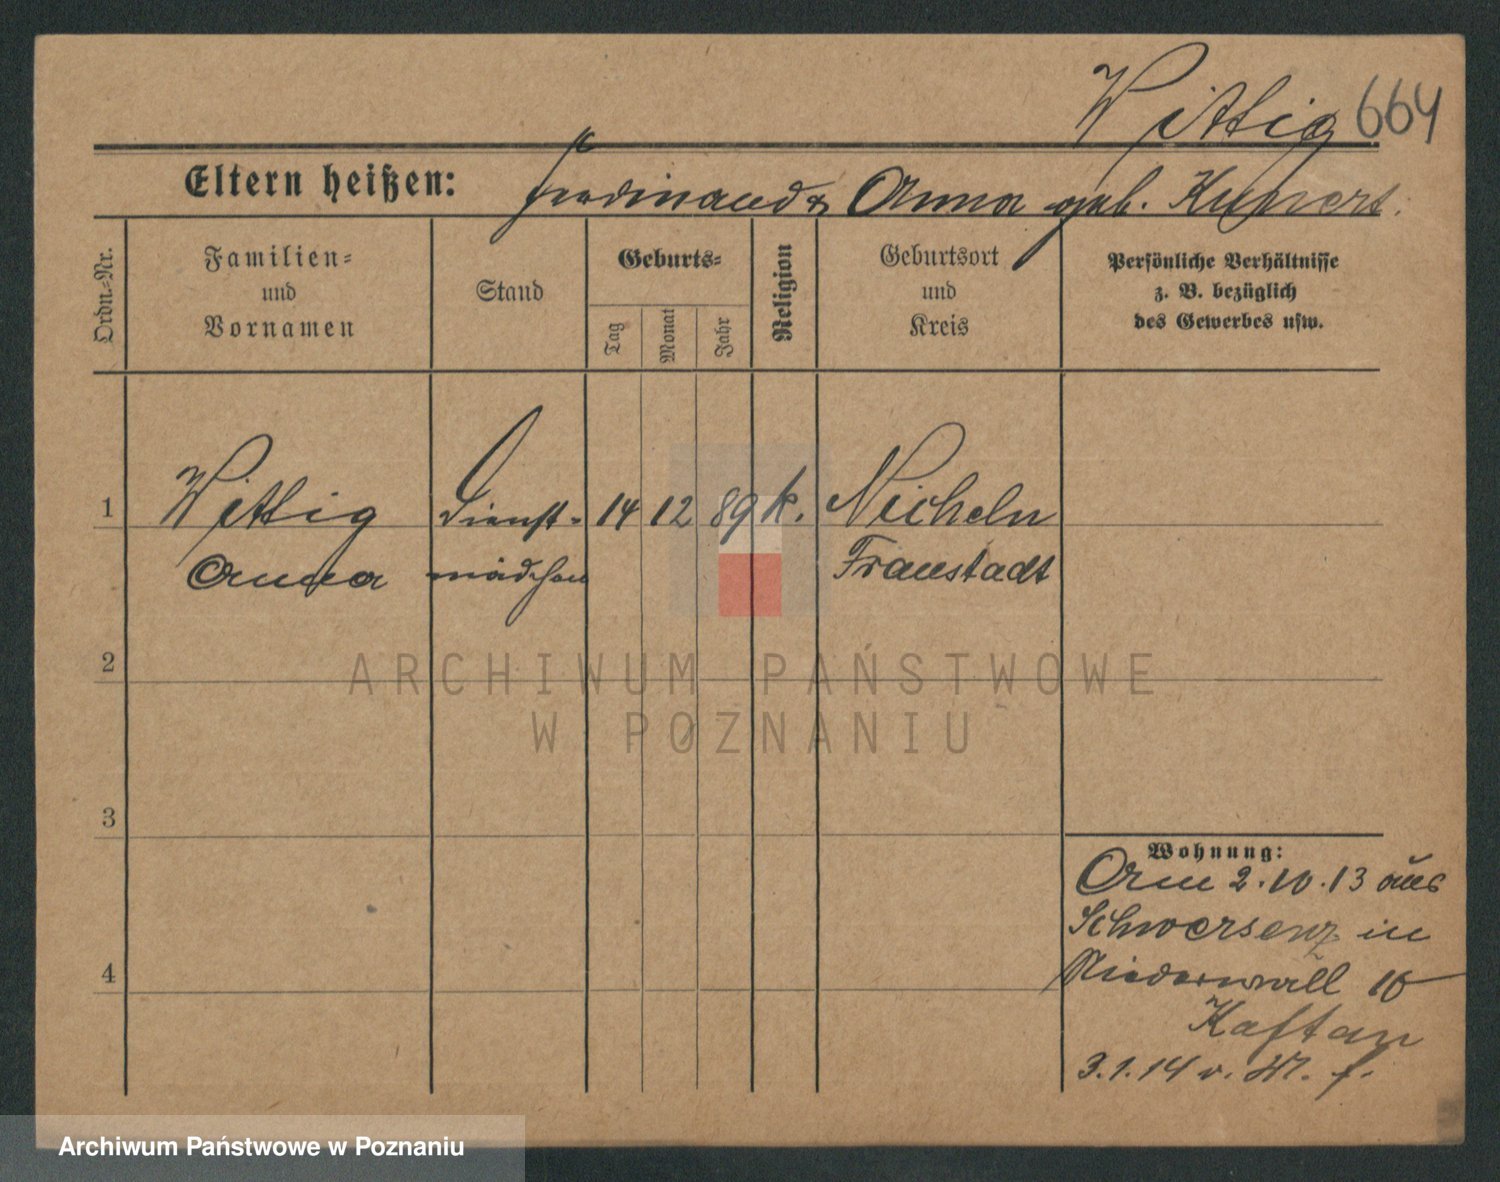 Wittig 664
Eltern heißen: Ferdinand & Anna geb. Kupert.
Ordn.-Nr.
Familien-
und
Vornamen
Stand
Geburts-
Tag
Monat
Jahr
Religion
Geburtsort
und
Kreis
Persönliche Verhältnisse
z. B. bezüglich
des Gewerbes usw.
1 Wittig Dienst- 14 12 89 k. Nicheln
Anna mädchen Fraustadt
2
ARCHIWUM PAŃSTWOWE
W POZNANIU
3
Wohnung:
Am 2.10.13 aus
Schwersenz in
4 Niederwall
Kaftan
3.1.14 v.
Archiwum Państwowe w Poznaniu